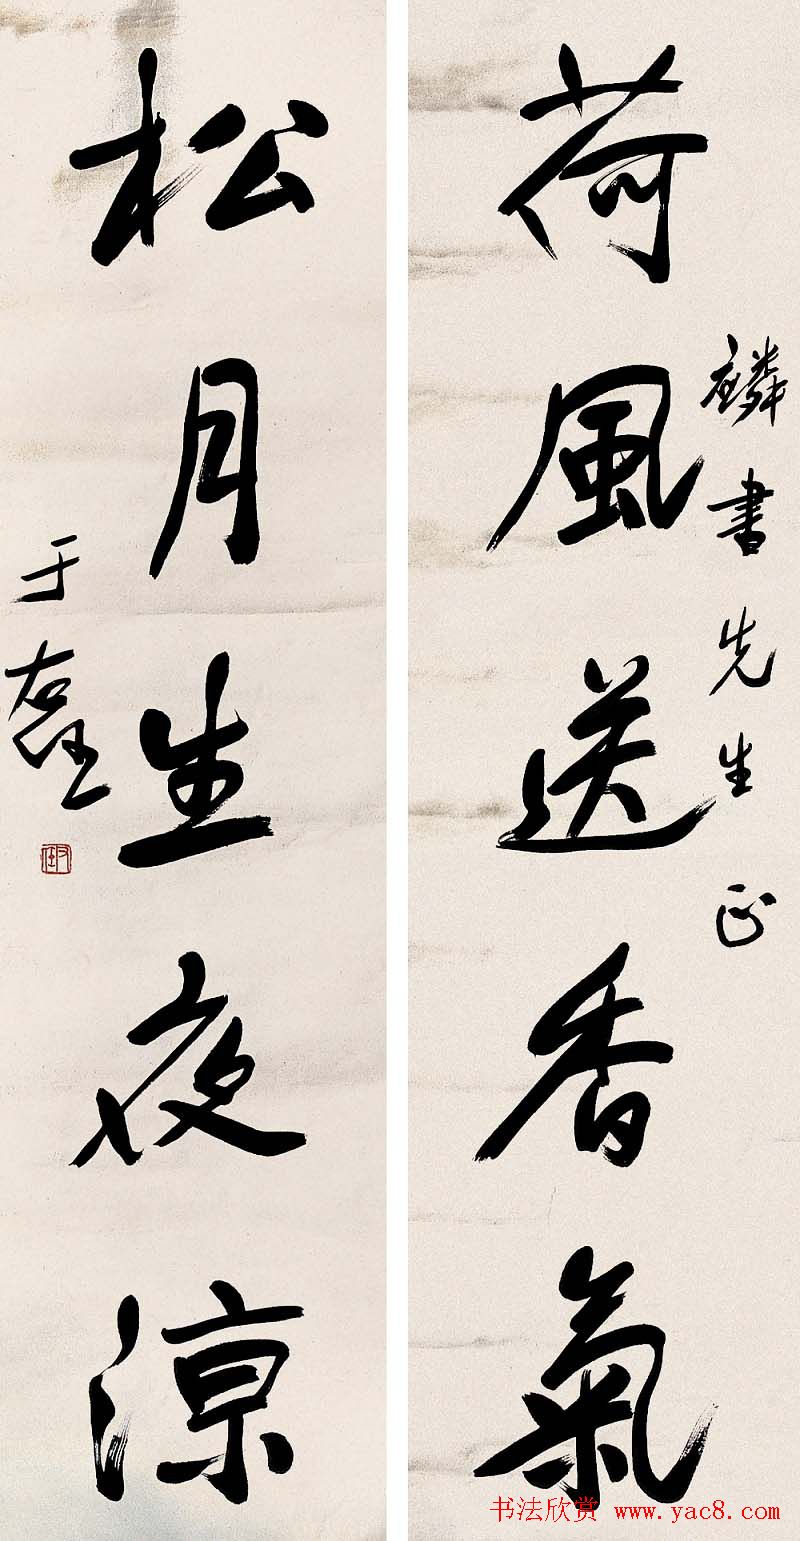 麟書先生正
荷風送香氣
松月生夜涼
于右任
右任
书法欣赏 www.yac8.com